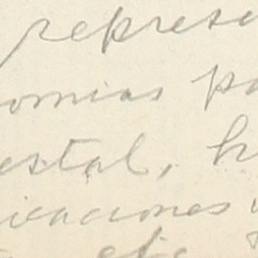 represe
omias pa
estal, h
icaciones
etc